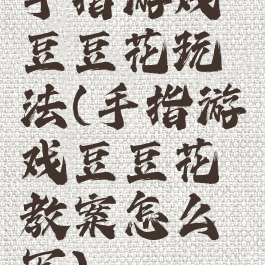 手指游戏
豆豆花玩
法(手指游
戏豆豆花
教案怎么
写)